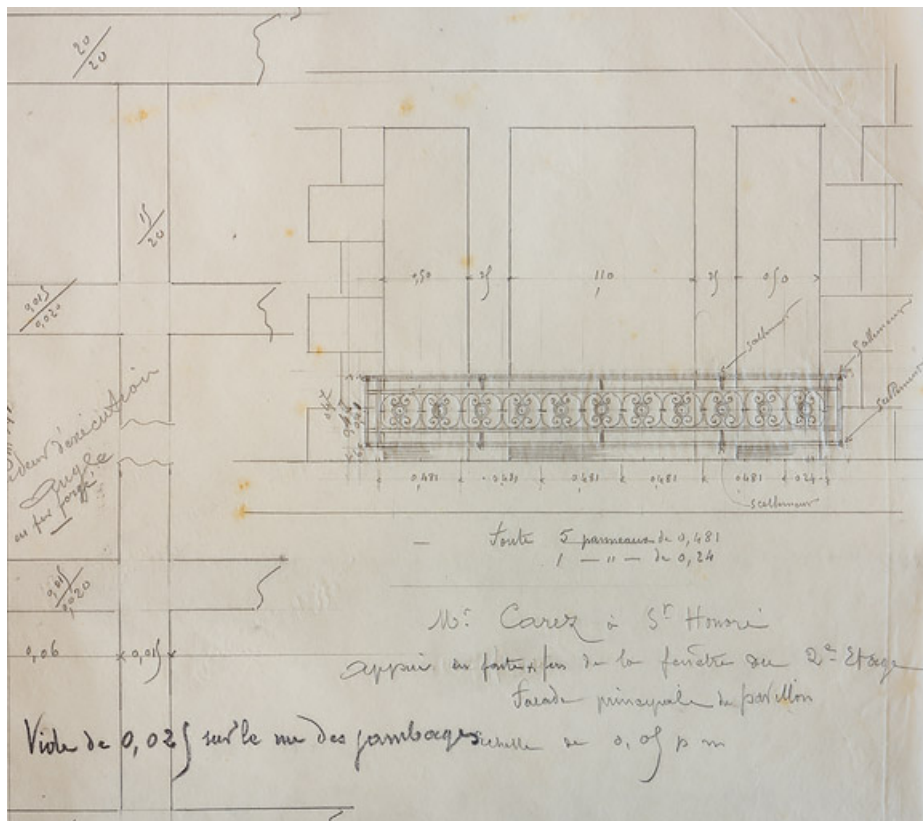 20/20
15/20
0,015/0,020
d'exécution
Angle
en fer forgé
0,015/0,020
0,06 0,015
0,50 25 1,10 25 0,50
scellement
Scellement
scellement
0,481 0,481 0,481 0,481 0,481 0,24
scellement
— Fonte 5 panneaux de 0,481
1 — " — de 0,24
Mr. Carez à St Honoré
appui en fonte & fers de la fenêtre du 2e Etage
Facade principale du pavillon
Echelle de 0,05 p m
Vide de 0,025 sur le nu des jambages